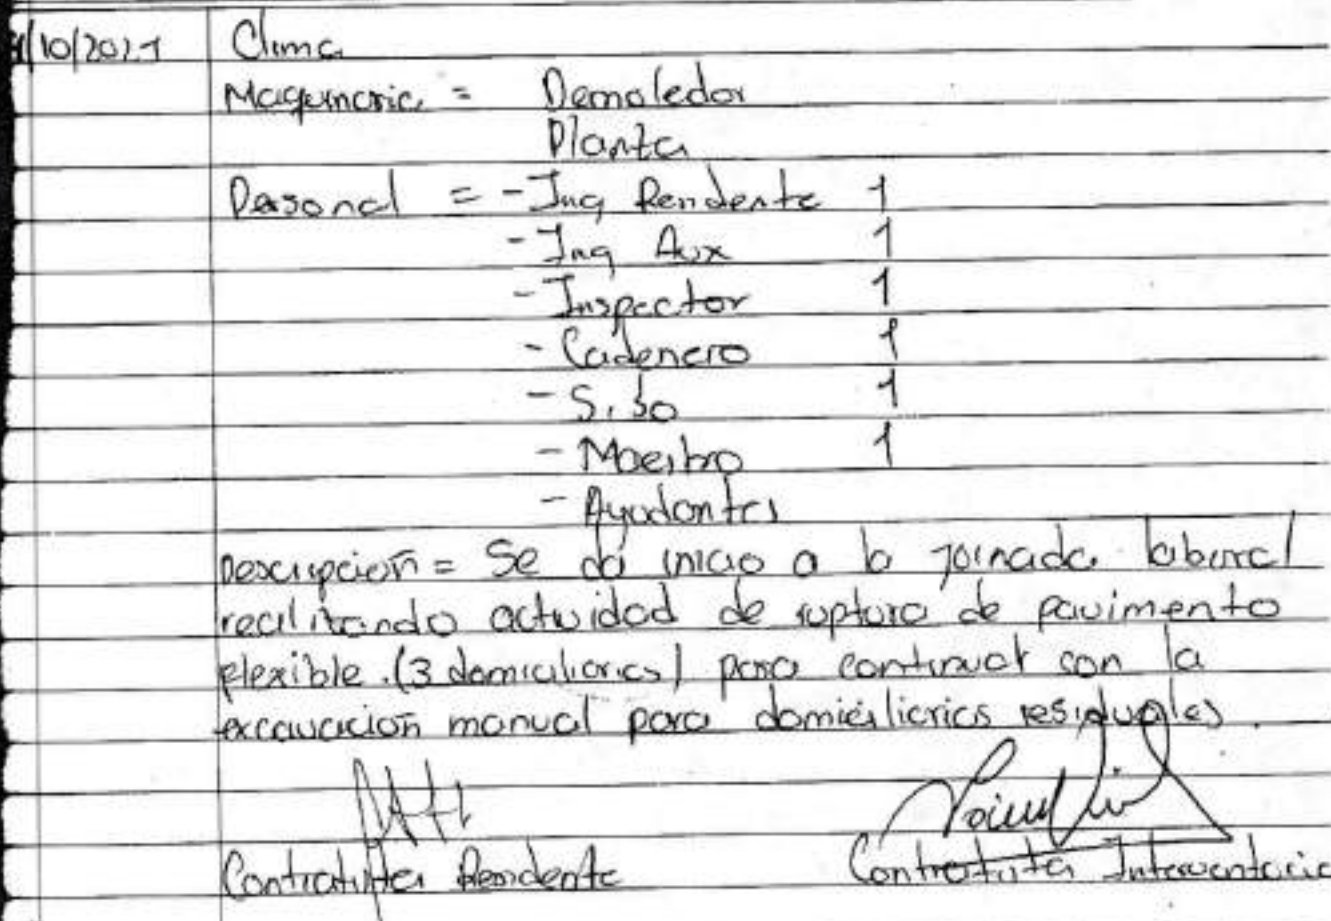 /10/2021 Clima
Maquinaria = Demoledor
Planta
Personal = - Ing Residente 1
- Ing Aux 1
- Inspector 1
- Cadenero 1
- S.iso 1
- Maestro 1
- Ayudantes
Descripción = Se dá inicio a la jornada laboral
realizando actividad de ruptura de pavimento
flexible. (3 domiciliarias) para continuar con la
excavación manual para domiciliarias residuales.
Contratista Residente Contratista Interventoria